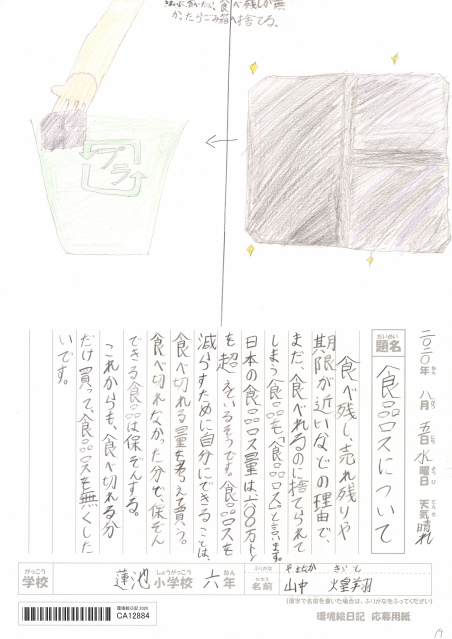 きれいに食べたら、食べ残しが無
かったらごみ箱へ捨てる。
プラ
二〇二〇年 八月 五日 水曜日 天気 晴れ
だいめい
題名
食品ロスについて
食べ残し、売れ残りや
期限が近いなどの理由で、
まだ、食べれるのに捨てられて
しまう食品を「食品ロス」と言います。
日本の食品ロス量は、600万トン
を超えているそうです。食品ロスを
減らすために自分にできることは、
食べ切れる量を考えて買う。
食べ切れなかった分で、保ぞん
できる食品は保ぞんする。
これからも、食べ切れる分
だけ買って、食品ロスを無くした
いです。
がっこう
学校
蓮池
しょうがっこう
小学校
六
ねん
年
ふりがな
やまなか
なまえ
名前
山中
(漢字で名前を書いた場合は、ふりがなをふってください)
環境絵日記2020
CA12884
環境絵日記 応募用紙
19